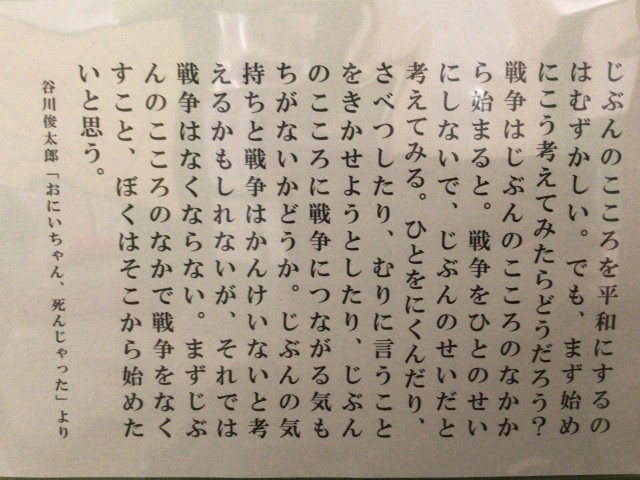 じぶんのこころを平和にするの
はむずかしい。でも、まず始め
にこう考えてみたらどうだろう？
戦争はじぶんのこころのなかか
ら始まると。戦争をひとのせい
にしないで、じぶんのせいだと
考えてみる。ひとをにくんだり、
さべつしたり、むりに言うこと
をきかせようとしたり、じぶん
のこころに戦争につながる気も
ちがないかどうか。じぶんの気
持ちと戦争はかんけいないと考
えるかもしれないが、それでは
戦争はなくならない。まずじぶ
んのこころのなかで戦争をなく
すこと、ぼくはそこから始めた
いと思う。
谷川俊太郎「おにいちゃん、死んじゃった」より